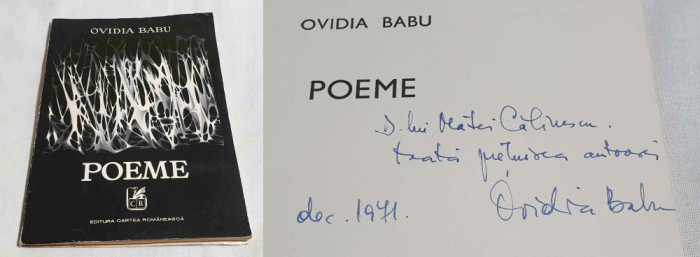 OVIDIA BABU
POEME
CR
EDITURA CARTEA ROMÂNEASCĂ
OVIDIA BABU
POEME
D. lui Matei Călinescu.
toată prețuirea autoarei
dec. 1971.
Ovidia Babu